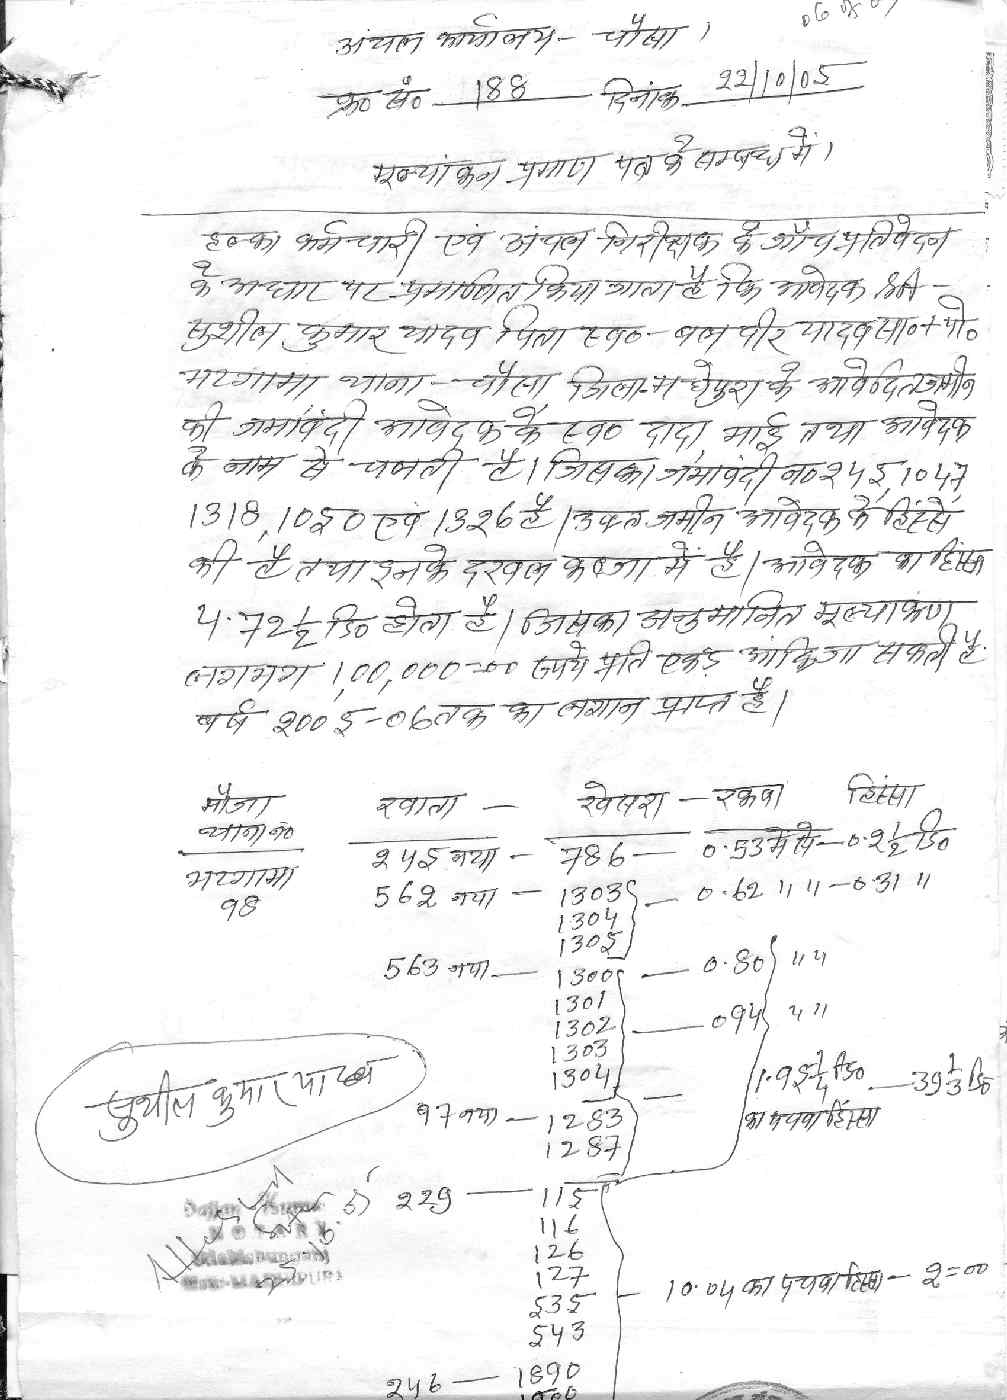 अंचल कार्यालय - चौसा ।
क्र० सं० 188 दिनांक 22/10/05
मूल्यांकन प्रमाण पत्र के सम्बन्ध में ।
हल्का कर्मचारी एवं अंचल निरीक्षक के जाँच प्रतिवेदन
के आधार पर प्रमाणित किया जाता है कि आवेदक श्री -
सुशील कुमार यादव पिता स्व० - बलवीर यादव सा०+पो०
भटगामा थाना - चौसा, जिला-मधेपुरा के आवेदित जमीन
की जमाबंदी आवेदक के स्व० दादा, भाई तथा आवेदक
के नाम से चलती है। जिसका जमाबंदी न० 245, 1047,
1318, 1050 एवं 1326 है। उक्त जमीन आवेदक के हिस्से
की है तथा इनके दखल कब्जा में है। आवेदक का हिस्सा
4.72 1/2 डि० होता है। जिसका अनुमानित मूल्यांकण
लगभग 1,00,000=00 रूपये प्रति एकड़ आंकि जा सकती है.
वर्ष 2005-06 तक का लगान प्राप्त है।
मौजा खाता - खेसरा - रकवा हिस्सा
थाना नं०
245 नया - 786 - 0.53 मे से - 0.2 1/2 डि०
भटगामा
98
562 नया - 1303 - 0.62 " " - 0.31 "
1304
1305
563 नया - 1300 - 0.80 " "
1301
1302 - 094 " "
1303
1304 - 1.95 1/4 डि० - 39 1/3 डि०
97 नया - 1283 का पचवा हिस्सा
1287
सुशील कुमार यादव
229 - 115
116
126
127
535 - 10.04 का पचवा हिस्सा - 2=00
543
246 - 1890
NOTARY